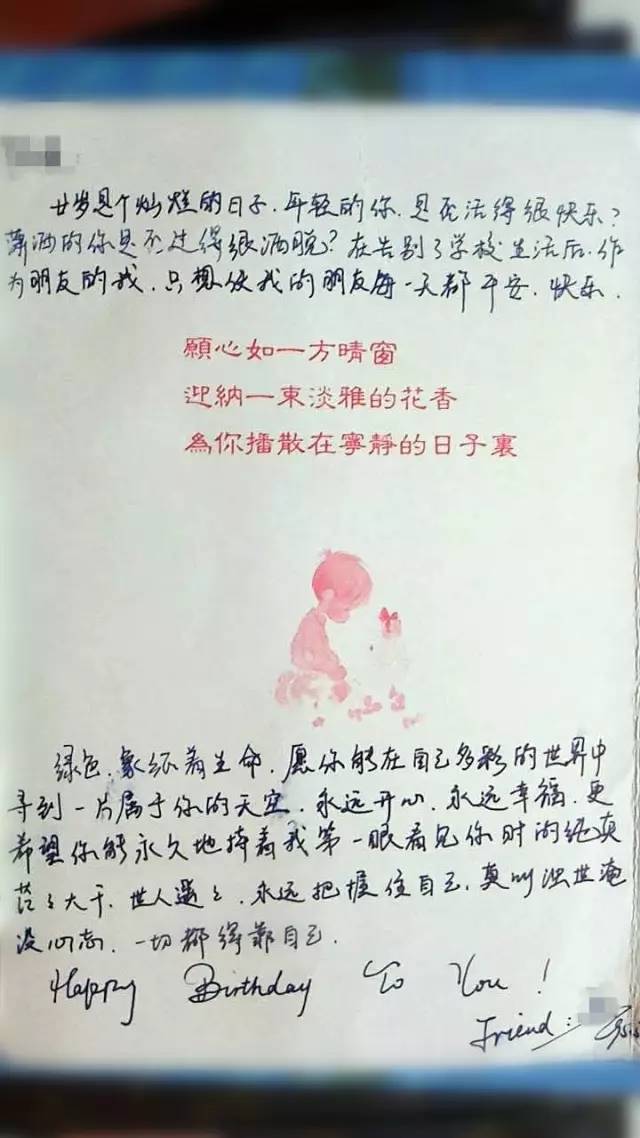 廿岁是个灿烂的日子.年轻的你.是否活得很快乐?
潇洒的你是否过得很洒脱?在告别了学校生活后.作
为朋友的我.只想使我的朋友每一天都平安.快乐.
願心如一方晴窗
迎納一束淡雅的花香
為你播散在寧靜的日子裏
绿色.象征着生命.愿你能在自己多彩的世界中
寻到一片属于你的天空.永远开心.永远幸福.更
希望你能永久地持着我第一眼看见你时的纯真
茫々大千.世人遥々.永远把握住自己.莫叫浊世淹
没心志.一切都得靠自己.
Happy Birthday To You!
Friend: